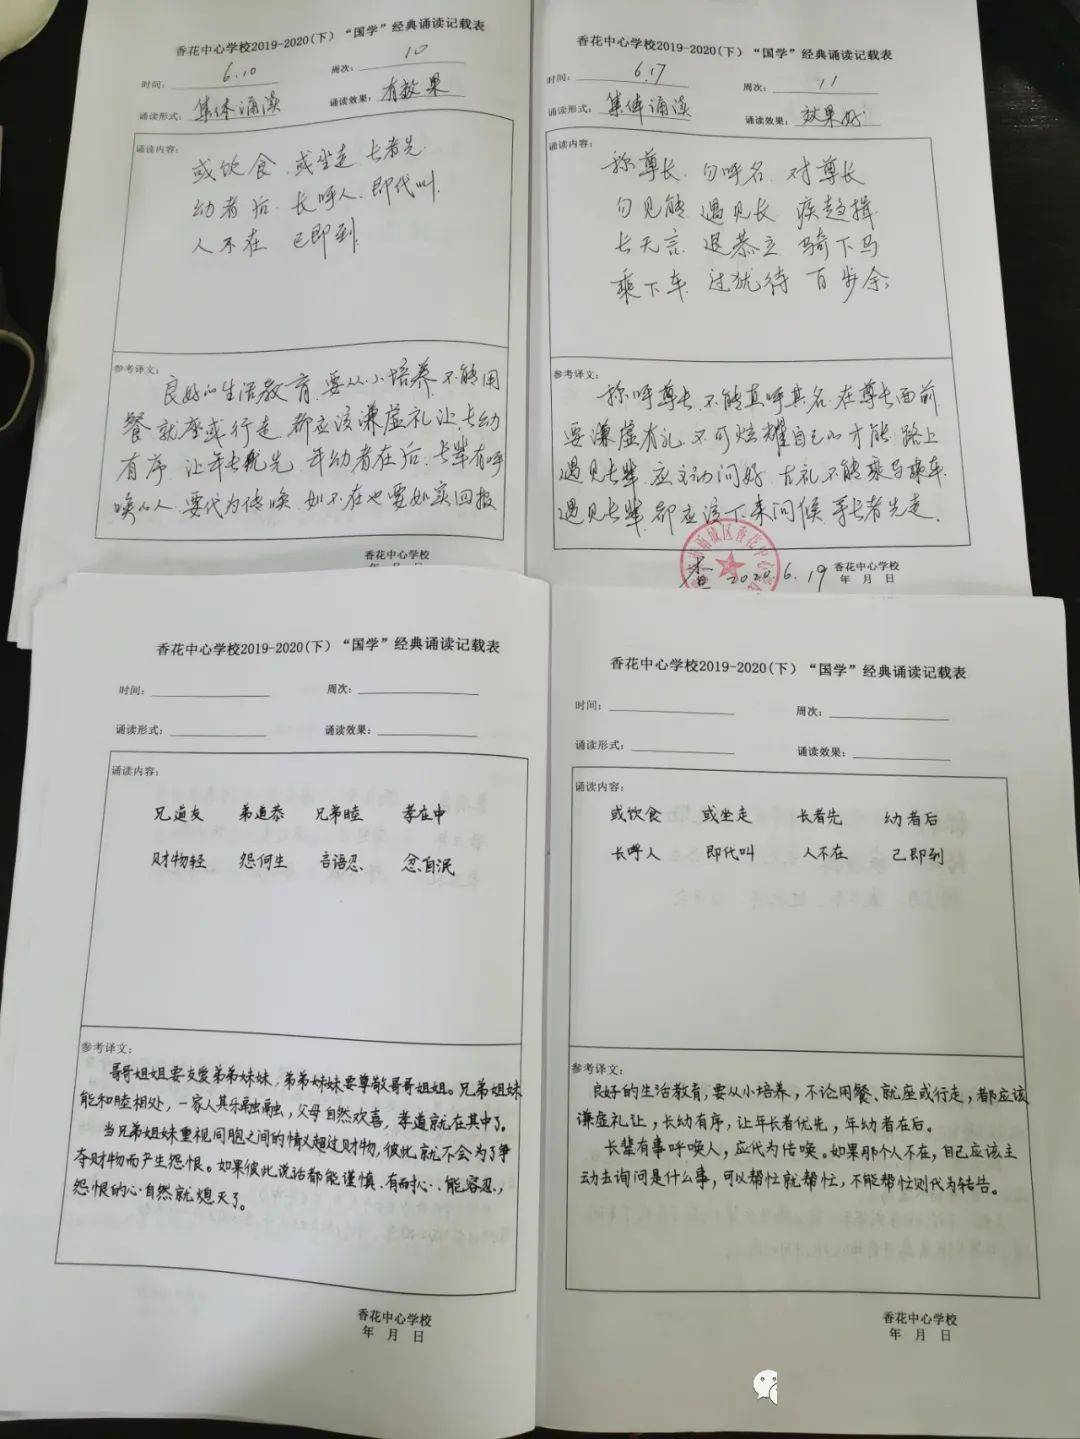 香花中心学校2019-2020(下)“国学”经典诵读记载表
时间: 6.10 周次: 10
诵读形式: 集体诵读 诵读效果: 有效果
诵读内容:
或饮食 或坐走 长者先
幼者后 长呼人 即代叫
人不在 己即到
参考译文:
良好的生活教育,要从小培养 不能用
餐 就座或行走 都应该谦虚礼让 长幼
有序 让年长优先 年幼者在后 长辈有呼
唤的人 要代为传唤 如不在也要如实回报
香花中心学校
香花中心学校2019-2020(下)“国学”经典诵读记载表
时间: 6.17 周次: 11
诵读形式: 集体诵读 诵读效果: 效果好
诵读内容:
称尊长 勿呼名 对尊长
勿见能 遇见长 疾趋揖
长无言 退恭立 骑下马
乘下车 过犹待 百步余
参考译文:
称呼尊长 不能直呼其名 在尊长面前
要谦虚有礼 不可炫耀自己的才能 路上
遇见长辈 应主动问好 古礼不能乘马乘车
遇见长辈 都应该下来问候 等长者先走.
查 2020.6.19 香花中心学校
年 月 日
香花中心学校2019-2020(下)“国学”经典诵读记载表
时间: 周次:
诵读形式: 诵读效果:
诵读内容:
兄道友 弟道恭 兄弟睦 孝在中
财物轻 怨何生 言语忍 忿自泯
参考译文:
哥哥姐姐要友爱弟弟妹妹,弟弟妹妹要尊敬哥哥姐姐。兄弟姐妹
能和睦相处,一家人其乐融融,父母自然欢喜,孝道就在其中了。
当兄弟姐妹重视同胞之间的情义超过财物,彼此就不会为了争
夺财物而产生怨恨。如果彼此说话都能谨慎、有耐心、能容忍,
怨恨的心自然就熄灭了。
香花中心学校
年 月 日
香花中心学校2019-2020(下)“国学”经典诵读记载表
时间: 周次:
诵读形式: 诵读效果:
诵读内容:
或饮食 或坐走 长者先 幼者后
长呼人 即代叫 人不在 己即到
参考译文:
良好的生活教育,要从小培养,不论用餐、就座或行走,都应该
谦虚礼让,长幼有序,让年长者优先,年幼者在后。
长辈有事呼唤人,应代为传唤。如果那个人不在,自己应该主
动去询问是什么事,可以帮忙就帮忙,不能帮忙则代为转告。
香花中心学校
年 月 日